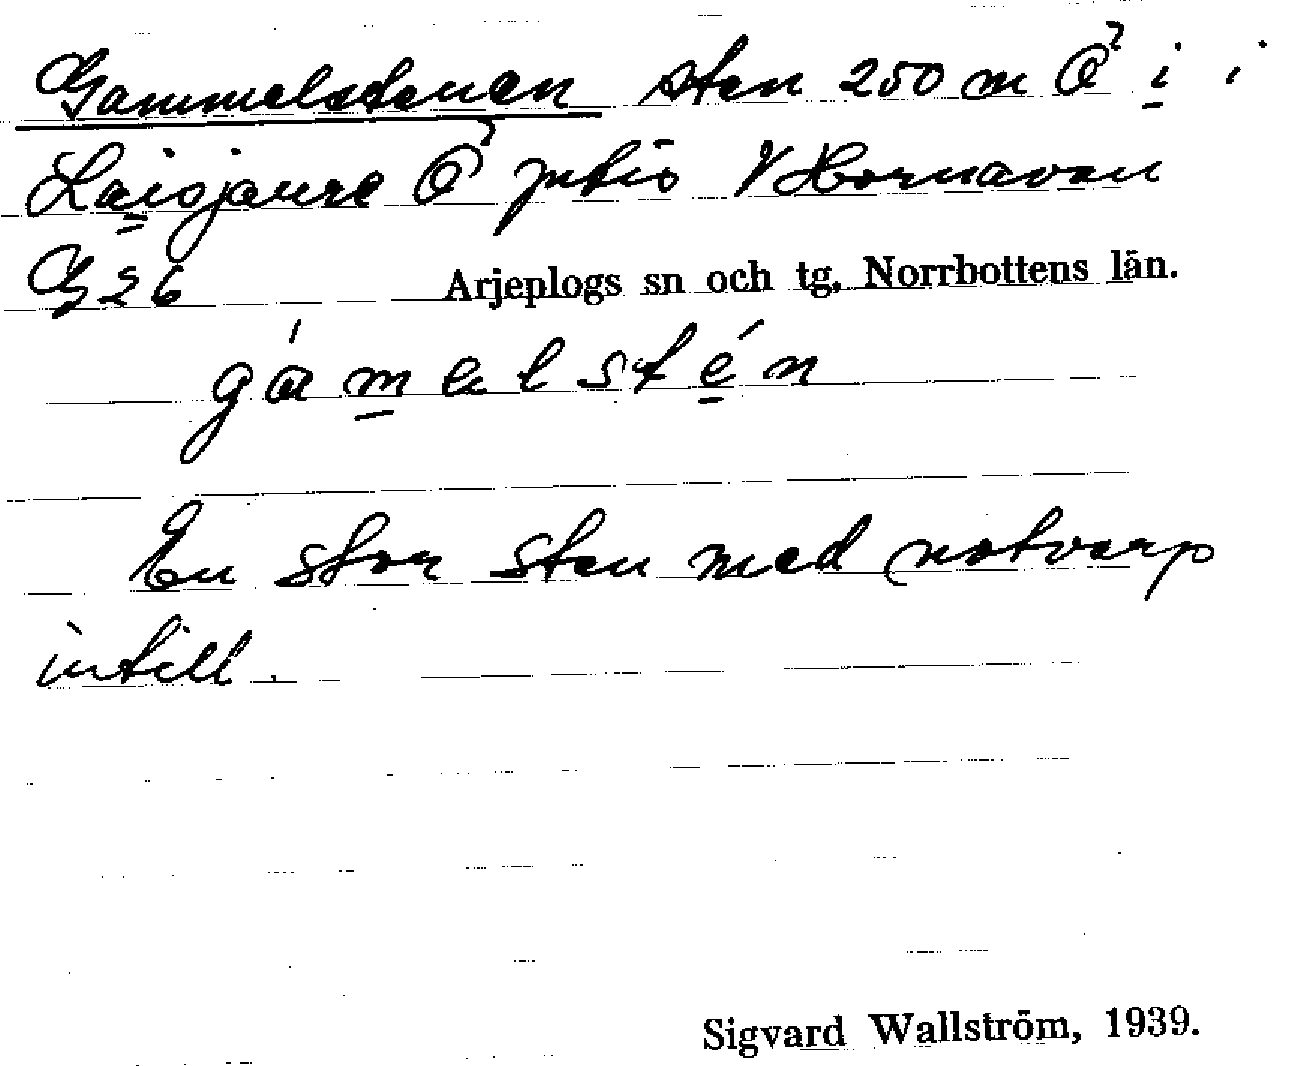 Gammelstenen sten 250 m Ö i
Laisjaure Ö Jutis V Hornavan
G 26 Arjeplogs sn och tg, Norrbottens län.
gámelstén
En stor sten med notvarp
intill.
Sigvard Wallström, 1939.